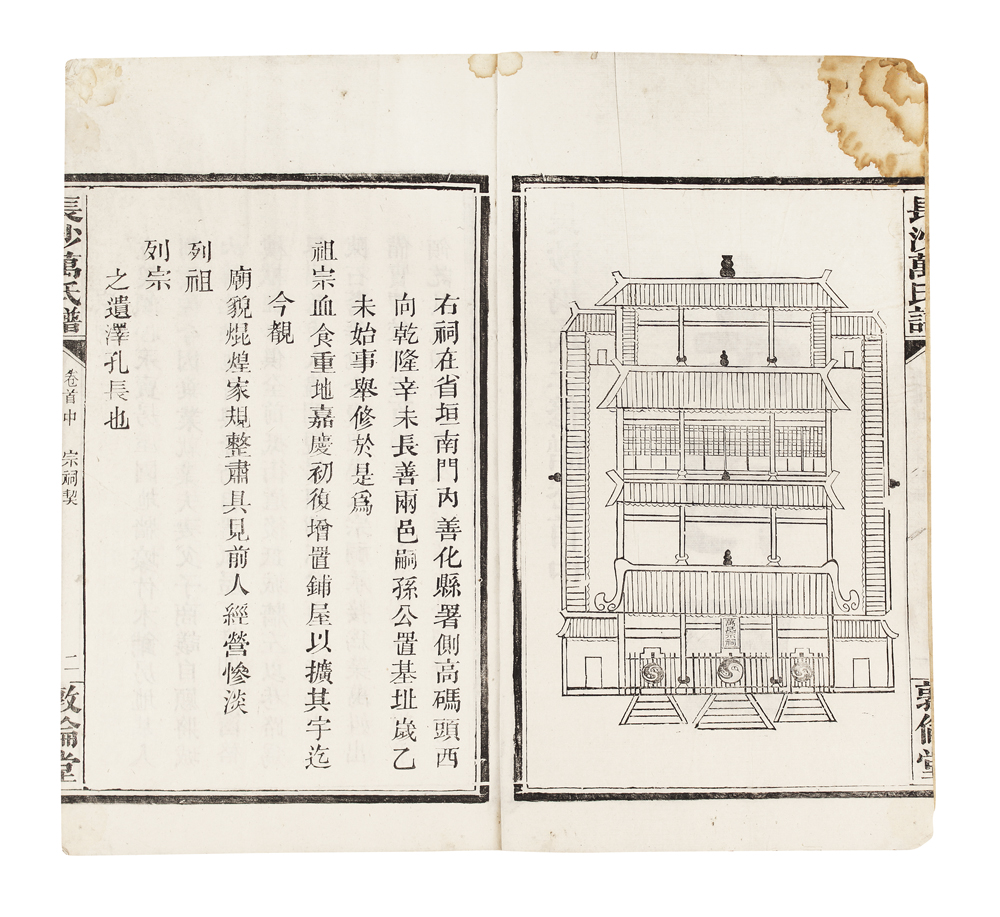 長沙萬氏譜
敦倫堂
萬氏宗祠
右祠在省垣南門內善化縣署側高碼頭西
向乾隆辛未長善兩邑嗣孫公置基址歲乙
未始事舉修於是爲
祖宗血食重地嘉慶初復增置鋪屋以擴其宇迄
今覩
廟貌焜煌家規整肅具見前人經營慘淡
列祖
列宗
之遺澤孔長也
長沙萬氏譜
卷首中
宗祠契
二
敦倫堂